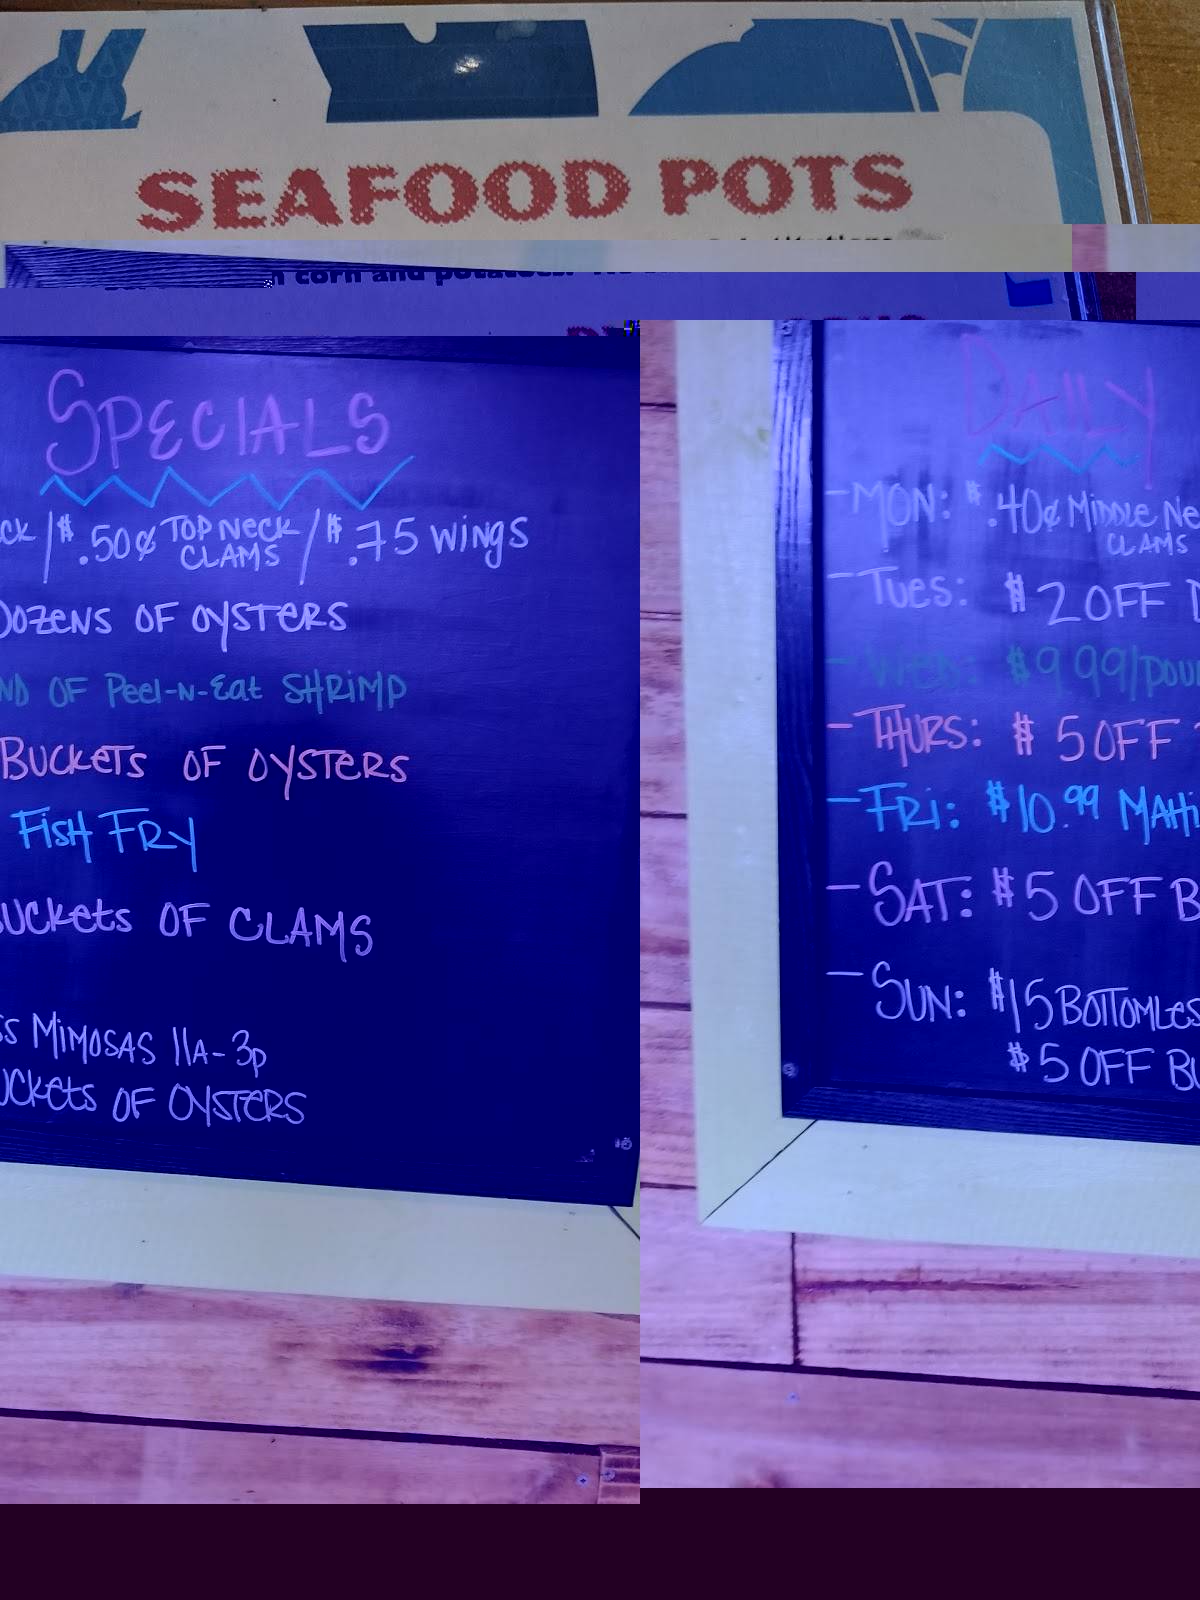 SEAFOOD POTS
corn and
SPECIALS
/ $.50¢ TOP NECK CLAMS / $.75 WINGS
DOZENS OF OYSTERS
OF Peel-N-Eat SHRIMP
BUCKETS OF OYSTERS
FISH FRY
BUCKETS OF CLAMS
MIMOSAS 11A-3P
OF OYSTERS
DAILY
-MON: $.40¢ MIDDLE
CLAMS
-TUES: $2 OFF
-WED: $9.99/
-THURS: $5 OFF
-FRI: $10.99 MAHI
-SAT: $5 OFF
-SUN: $15
$5 OFF